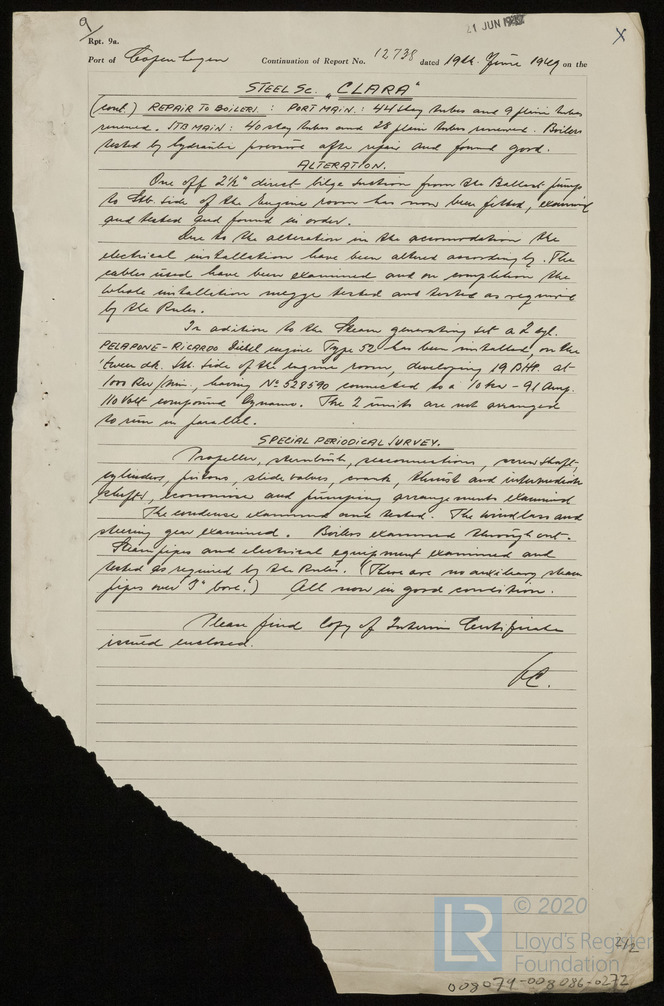 9/
21 JUN 1949
X
Rpt. 9a.
Port of Copenhagen Continuation of Report No. 12738 dated 19th. June 1949 on the
STEEL Sc. "CLARA"
(cont.) REPAIR TO BOILERS : PORT MAIN : 44 stay tubes and 9 plain tubes
renewed. STB MAIN : 40 stay tubes and 28 plain tubes renewed. Boilers
tested by hydraulic pressure after repair and found good.
ALTERATION.
One off 2½" direct bilge suction from the Ballast pump
to Stb. side of the Engine room has now been fitted, examined
and tested and found in order.
Due to the alteration in the acomodation the
electrical installation have been altred accordingly. The
cables used have been examined and on completion the
whole installation megge tested and tested as required
by the Rules.
In adition to the Steam generating set a 2 cyl.
PELAPONE - RICARDO Diesel engine Type 52 has been installed, on the
'tween dk. Stb. side of the engine room, developing 19 BHP. at
1000 Rev/Min., having No 528590 connected to a 10 kw - 91 Amp.
110 Volt compound Dynamo. The 2 units are not arranged
to run in parallel.
SPECIAL PERIODICAL SURVEY.
Propeller, sternbush, seaconnections, screwshaft,
cylinders, pistons, slide valves, crank, thrust and intermediate
shafts, economiser and pumping arrangements examined
The condense examined and tested. The windlass and
steering gear examined. Boilers examined throughout.
Steam pipes and electrical equipment examined and
tested as required by the Rules. (There are no auxiliary steam
pipes over 3" bore.) All now in good condition.
Please find Copy of Interim Certificate
issued enclosed.
© 2020
LR
Lloyd's Register
Foundation
2/2
008079-008086-0272